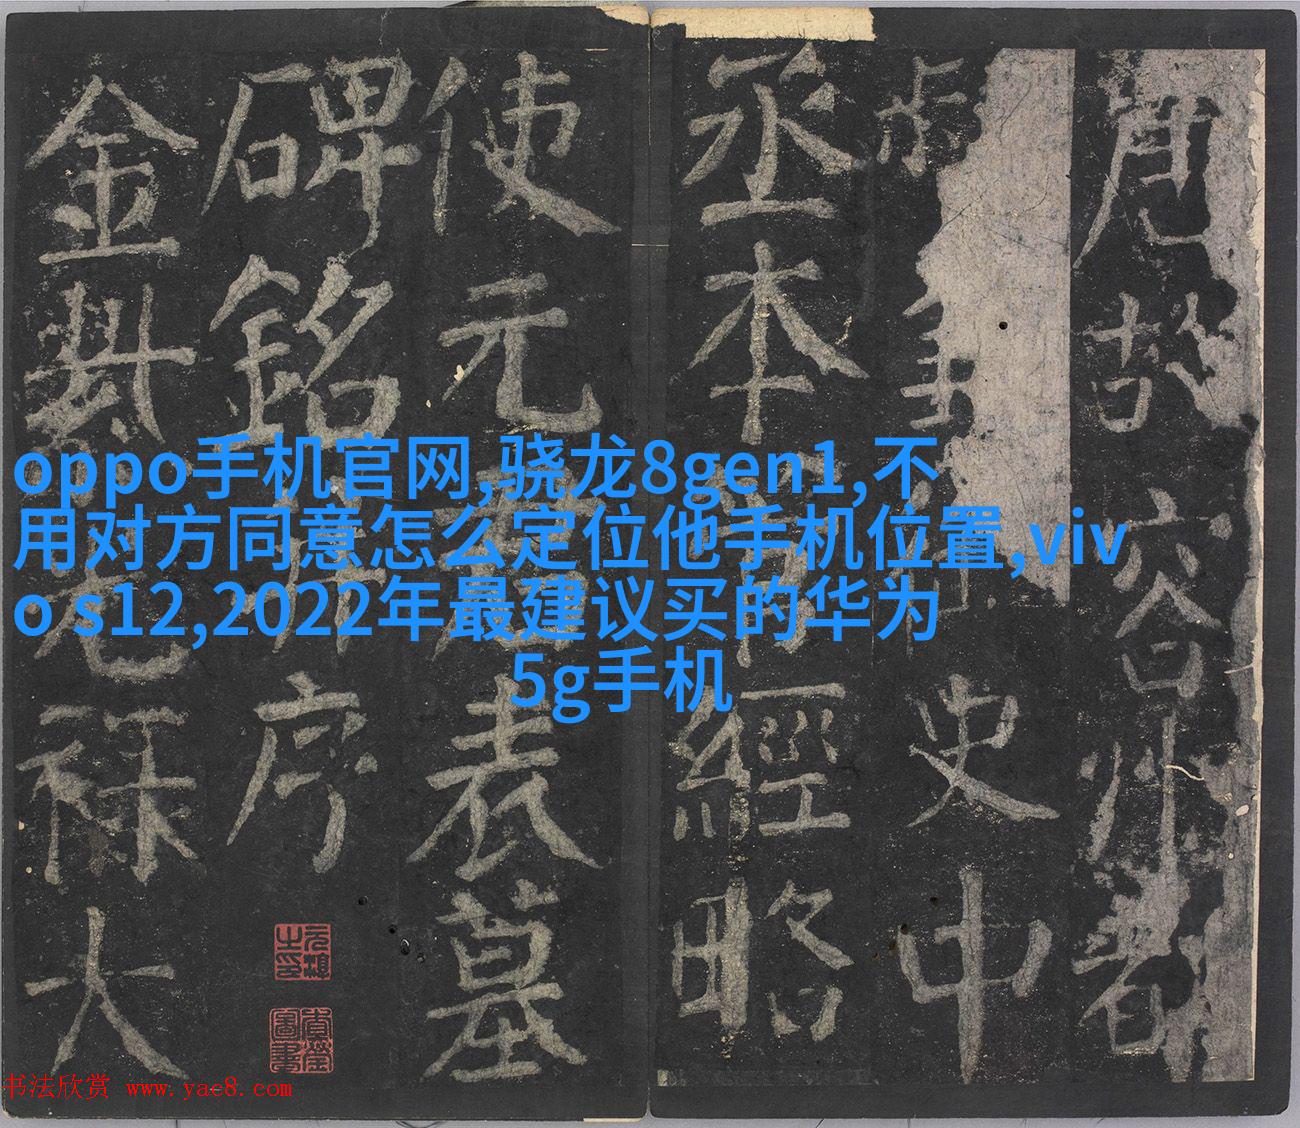 唐故容州都
史中
丞本經略
使元表墓
碑銘并序
金紫光祿大
oppo手机官网,骁龙8gen1,不
用对方同意怎么定位他手机位置,viv
o s12,2022年最建议买的华为
5g手机
书法欣赏 www.yac8.com